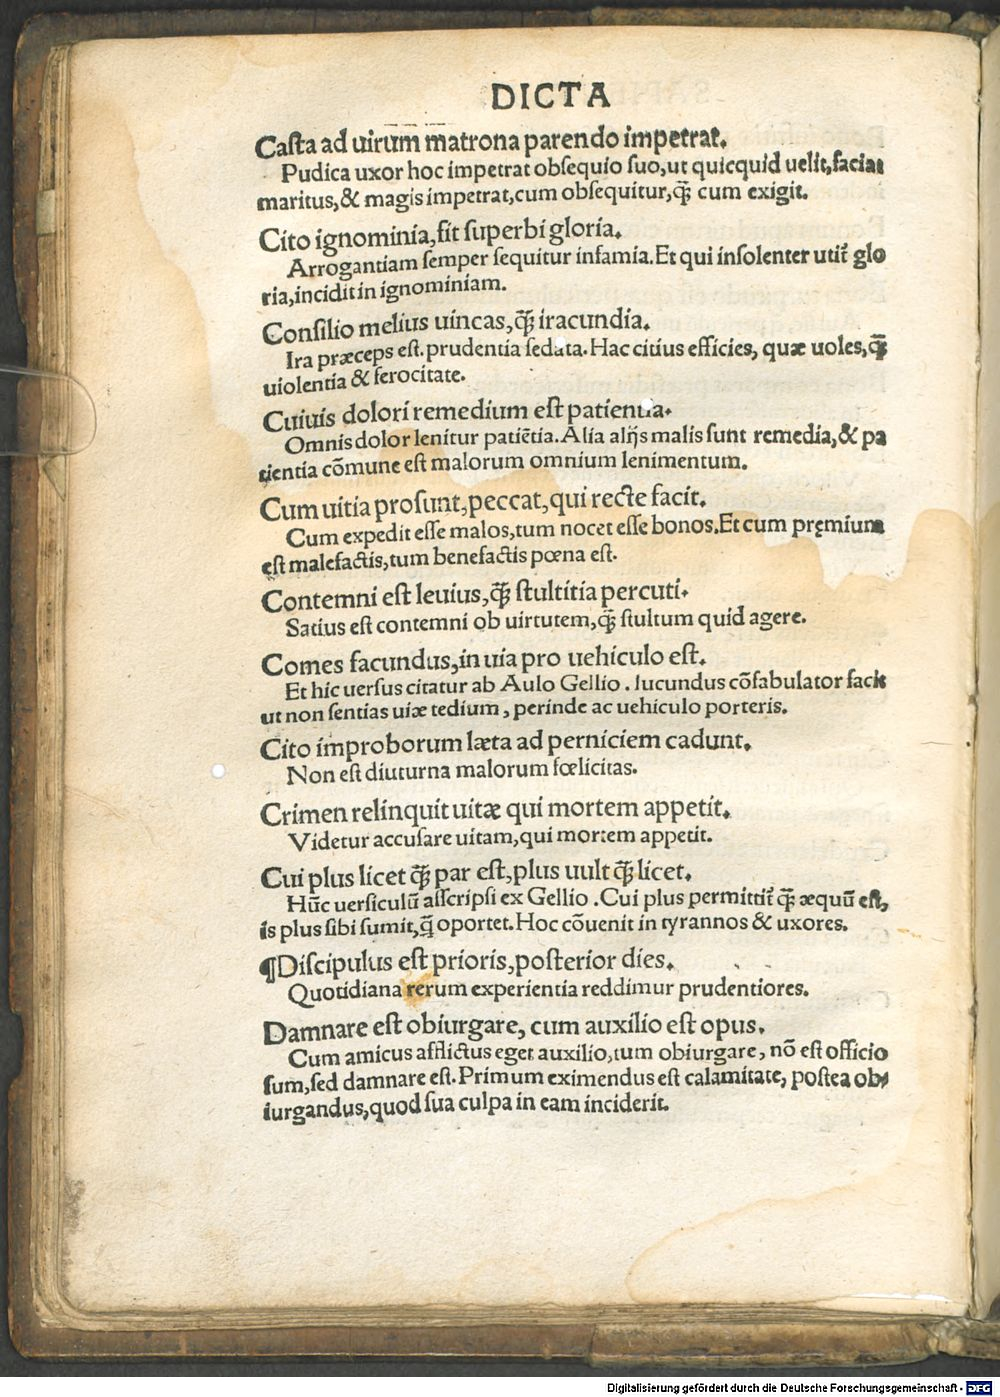 DICTA
Caſta ad uirum matrona parendo impetrat.
Pudica uxor hoc impetrat obſequio ſuo,ut quicquid uelit,faciat
maritus,& magis impetrat,cum obſequitur,q̃ȝ cum exigit.
Cito ignominia,fit ſuperbi gloria.
Arrogantiam ſemper ſequitur infamia.Et qui inſolenter utit᷑ glo
ria,incidit in ignominiam.
Conſilio melius uincas,q̃ȝ iracundia.
Ira præceps eſt.prudentia ſedata.Hac citius efficies, quæ uoles,q̃ȝ
uiolentia & ferocitate.
Cuiuis dolori remedium eſt patientia.
Omnis dolor lenitur patiẽtia.Alia alijs malis ſunt remedia,& pa
tientia cõmune eſt malorum omnium lenimentum.
Cum uitia proſunt,peccat,qui recte facit.
Cum expedit eſſe malos,tum nocet eſſe bonos.Et cum pręmium
eſt malefactis,tum benefactis pœna eſt.
Contemni eſt leuius,q̃ȝ ſtultitia percuti.
Satius eſt contemni ob uirtutem,q̃ȝ ſtultum quid agere.
Comes facundus,in uia pro uehiculo eſt.
Et hic uerſus citatur ab Aulo Gellio . Iucundus cõfabulator facit
ut non ſentias uiæ tedium, perinde ac uehiculo porteris.
Cito improborum læta ad perniciem cadunt.
Non eſt diuturna malorum fœlicitas.
Crimen relinquit uitæ qui mortem appetit.
Videtur accuſare uitam,qui mortem appetit.
Cui plus licet q̃ȝ par eſt,plus uult q̃ȝ licet.
Hũc uerſiculũ aſſcripſi ex Gellio .Cui plus permittit᷑ q̃ȝ æquũ eſt,
is plus ſibi ſumit,q̃ oportet.Hoc cõuenit in tyrannos & uxores.
¶Diſcipulus eſt prioris,poſterior dies.
Quotidiana rerum experientia reddimur prudentiores.
Damnare eſt obiurgare, cum auxilio eſt opus.
Cum amicus afflictus eget auxilio,tum obiurgare, nõ eſt officio
ſum,ſed damnare eſt.Primum eximendus eſt calamitate, poſtea ob-
iurgandus,quod ſua culpa in eam inciderit.
Digitalisierung gefördert durch die Deutsche Forschungsgemeinschaft - DFG